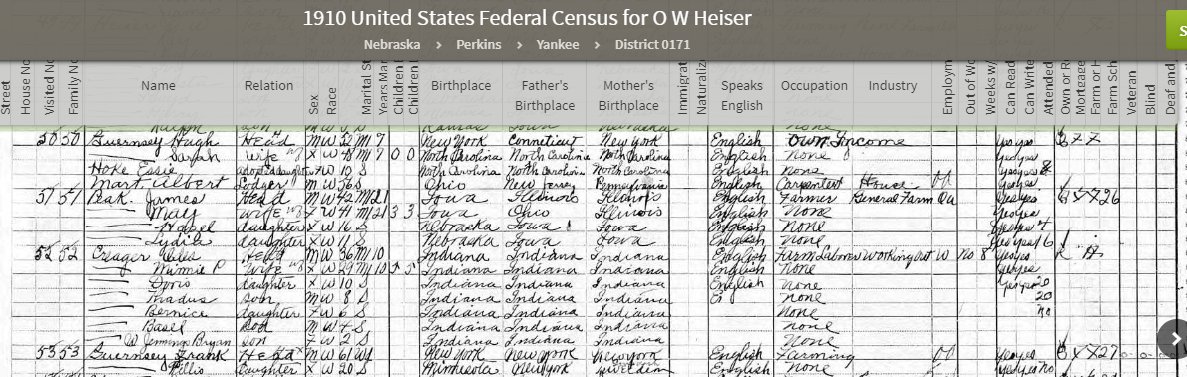 1910 United States Federal Census for O W Heiser
Nebraska > Perkins > Yankee > District 0171
S
Street House No Visited No Family No Name Relation Sex Race Marital St Years Mar Children Children Birthplace Father's Birthplace Mother's Birthplace Immigrat Naturaliz Speaks English Occupation Industry Employm Out of Wo Weeks w/ Can Read Can Write Attended Own or R Mortgage Farm or H Farm Sch Veteran Blind Deaf and
son M W S Kansas Iowa Nebraska none
50 50 Guernsey Hugh Head M W 52 M 7 New York Conneticut New York English Own Income yes yes
Sarah Wife W 48 M 7 0 0 North Carolina North Carolina North Carolina English none yes yes
Hoke Essie adopted daughter W 10 S North Carolina North Carolina North Carolina English none yes yes
Mart Albert Lodger M W 56 S Ohio New Jersey Pennsylvania English Carpenter House yes yes
51 51 Beak. James Head M W 42 M 21 Iowa Illinois Illinois English Farmer General Farm Oa yes yes 26
May Wife W 41 M 21 3 3 Iowa Ohio Illinois English none yes yes
Hazel daughter W 16 S Nebraska Iowa Iowa English none yes yes
Lydia daughter W 11 S Nebraska Iowa Iowa English none yes yes
52 52 Creager Head M W 36 M 10 Indiana Indiana Indiana English Farm Laborer Working out W no 8 yes yes R H
Minnie P Wife W 29 M 10 5 5 Indiana Indiana Indiana English none yes yes
Doris daughter W 10 S Indiana Indiana Indiana English none yes yes
son M W 8 S Indiana Indiana Indiana none
Bernice daughter W 6 S Indiana Indiana Indiana none
Basel son M W 4 S Indiana Indiana Indiana none
W Jennings Bryan son W 2 S Indiana Indiana Indiana none
53 53 Guernsey Frank Head M W 61 Wd New York New York New York English Farming yes yes 27
daughter W 20 S Minnesota New York Sweeden English none yes yes no